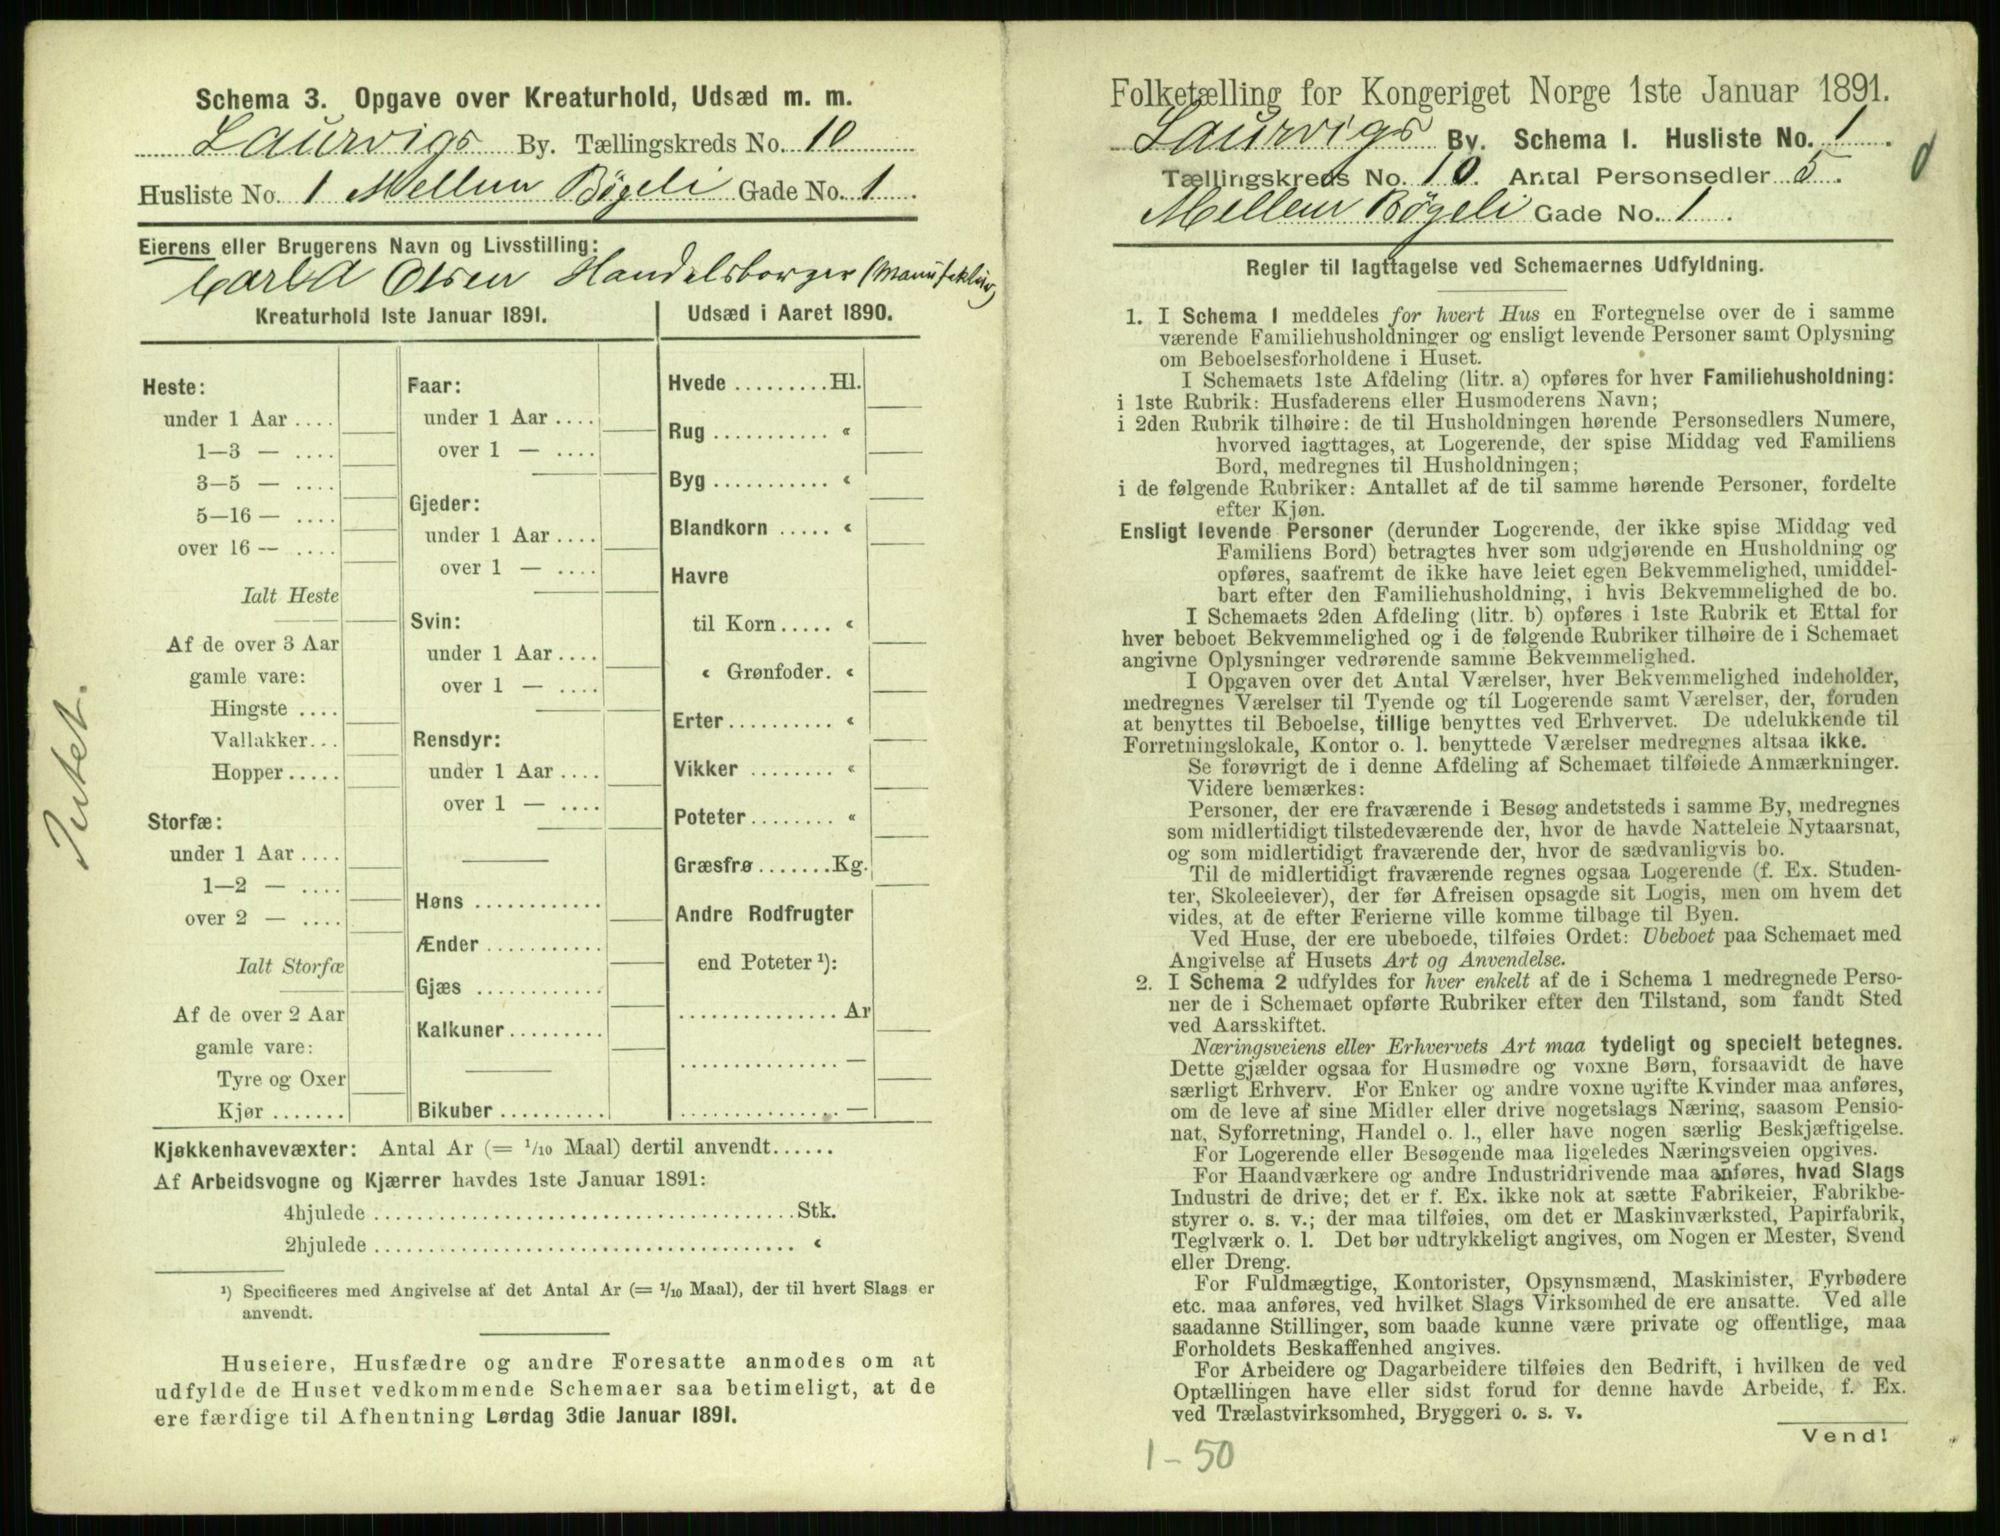 Schema 3. Opgave over Kreaturhold, Udsæd m. m.
Laurvigs By. Tællingskreds No. 10
Husliste No. 1 Mellem Bøgeli Gade No. 1
Eierens eller Brugerens Navn og Livsstilling:
Carl A Olsen Handelsborger (Manufaktur)
Kreaturhold 1ste Januar 1891.
Heste:
under 1 Aar ....
1—3 — ....
3—5 — ....
5—16 — ....
over 16 — ....
Ialt Heste
Af de over 3 Aar
gamle vare:
Hingste ....
Vallakker...
Hopper .....
Storfæ:
under 1 Aar ....
1—2 — ....
over 2 — ....
Ialt Storfæ
Af de over 2 Aar
gamle vare:
Tyre og Oxer
Kjør .......
Faar:
under 1 Aar ....
over 1 — ....
Gjeder:
under 1 Aar ....
over 1 — ....
Svin:
under 1 Aar ....
over 1 — ....
Rensdyr:
under 1 Aar ....
over 1 — ....
Høns ............
Ænder ...........
Gjæs ............
Kalkuner.........
Bikuber ..........
Udsæd i Aaret 1890.
Hvede .........Hl.
Rug ........... «
Byg ........... «
Blandkorn ..... «
Havre
til Korn ..... «
« Grønfoder. «
Erter .......... «
Vikker ........ «
Poteter ........ «
Græsfrø .......Kg.
Andre Rodfrugter
end Poteter ¹):
............... Ar
............... —
............... —
Kjøkkenhavevæxter: Antal Ar (= 1/10 Maal) dertil anvendt......
Af Arbeidsvogne og Kjærrer havdes 1ste Januar 1891:
4hjulede ........................................Stk.
2hjulede ........................................ «
¹) Specificeres med Angivelse af det Antal Ar (= 1/10 Maal), der til hvert Slags er
anvendt.
Huseiere, Husfædre og andre Foresatte anmodes om at
udfylde de Huset vedkommende Schemaer saa betimeligt, at de
ere færdige til Afhentning Lørdag 3die Januar 1891.
Intet.
Folketælling for Kongeriget Norge 1ste Januar 1891.
Laurvigs By. Schema I. Husliste No. 1
Tællingskreds No. 10. Antal Personsedler 5.
Mellem Bøgeli Gade No. 1
Regler til Iagttagelse ved Schemaernes Udfyldning.
1. I Schema 1 meddeles for hvert Hus en Fortegnelse over de i samme
værende Familiehusholdninger og ensligt levende Personer samt Oplysning
om Beboelsesforholdene i Huset.
I Schemaets 1ste Afdeling (litr. a) opføres for hver Familiehusholdning:
i 1ste Rubrik: Husfaderens eller Husmoderens Navn;
i 2den Rubrik tilhøire: de til Husholdningen hørende Personsedlers Numere,
hvorved iagttages, at Logerende, der spise Middag ved Familiens
Bord, medregnes til Husholdningen;
i de følgende Rubriker: Antallet af de til samme hørende Personer, fordelte
efter Kjøn.
Ensligt levende Personer (derunder Logerende, der ikke spise Middag ved
Familiens Bord) betragtes hver som udgjørende en Husholdning og
opføres, saafremt de ikke have leiet egen Bekvemmelighed, umiddel-
bart efter den Familiehusholdning, i hvis Bekvemmelighed de bo.
I Schemaets 2den Afdeling (litr. b) opføres i 1ste Rubrik et Ettal for
hver beboet Bekvemmelighed og i de følgende Rubriker tilhøire de i Schemaet
angivne Oplysninger vedrørende samme Bekvemmelighed.
I Opgaven over det Antal Værelser, hver Bekvemmelighed indeholder,
medregnes Værelser til Tyende og til Logerende samt Værelser, der, foruden
at benyttes til Beboelse, tillige benyttes ved Erhvervet. De udelukkende til
Forretningslokale, Kontor o. l. benyttede Værelser medregnes altsaa ikke.
Se forøvrigt de i denne Afdeling af Schemaet tilføiede Anmærkninger.
Videre bemærkes:
Personer, der ere fraværende i Besøg andetsteds i samme By, medregnes
som midlertidigt tilstedeværende der, hvor de havde Natteleie Nytaarsnat,
og som midlertidigt fraværende der, hvor de sædvanligvis bo.
Til de midlertidigt fraværende regnes ogsaa Logerende (f. Ex. Studen-
ter, Skoleelever), der før Afreisen opsagde sit Logis, men om hvem det
vides, at de efter Ferierne ville komme tilbage til Byen.
Ved Huse, der ere ubeboede, tilføies Ordet: Ubeboet paa Schemaet med
Angivelse af Husets Art og Anvendelse.
2. I Schema 2 udfyldes for hver enkelt af de i Schema 1 medregnede Perso-
ner de i Schemaet opførte Rubriker efter den Tilstand, som fandt Sted
ved Aarsskiftet.
Næringsveiens eller Erhvervets Art maa tydeligt og specielt betegnes.
Dette gjælder ogsaa for Husmødre og voxne Børn, forsaavidt de have
særligt Erhverv. For Enker og andre voxne ugifte Kvinder maa anføres,
om de leve af sine Midler eller drive nogetslags Næring, saasom Pensio-
nat, Syforretning, Handel o. l., eller have nogen særlig Beskjæftigelse.
For Logerende eller Besøgende maa ligeledes Næringsveien opgives.
For Haandværkere og andre Industridrivende maa anføres, hvad Slags
Industri de drive; det er f. Ex. ikke nok at sætte Fabrikeier, Fabrikbe-
styrer o. s. v.; der maa tilføies, om det er Maskinværksted, Papirfabrik,
Teglværk o. l. Det bør udtrykkeligt angives, om Nogen er Mester, Svend
eller Dreng.
For Fuldmægtige, Kontorister, Opsynsmænd, Maskinister, Fyrbødere
etc. maa anføres, ved hvilket Slags Virksomhed de ere ansatte. Ved alle
saadanne Stillinger, som baade kunne være private og offentlige, maa
Forholdets Beskaffenhed angives.
For Arbeidere og Dagarbeidere tilføies den Bedrift, i hvilken de ved
Optællingen have eller sidst forud for denne havde Arbeide, f. Ex.
ved Trælastvirksomhed, Bryggeri o. s. v.
Vend!
1 - 50